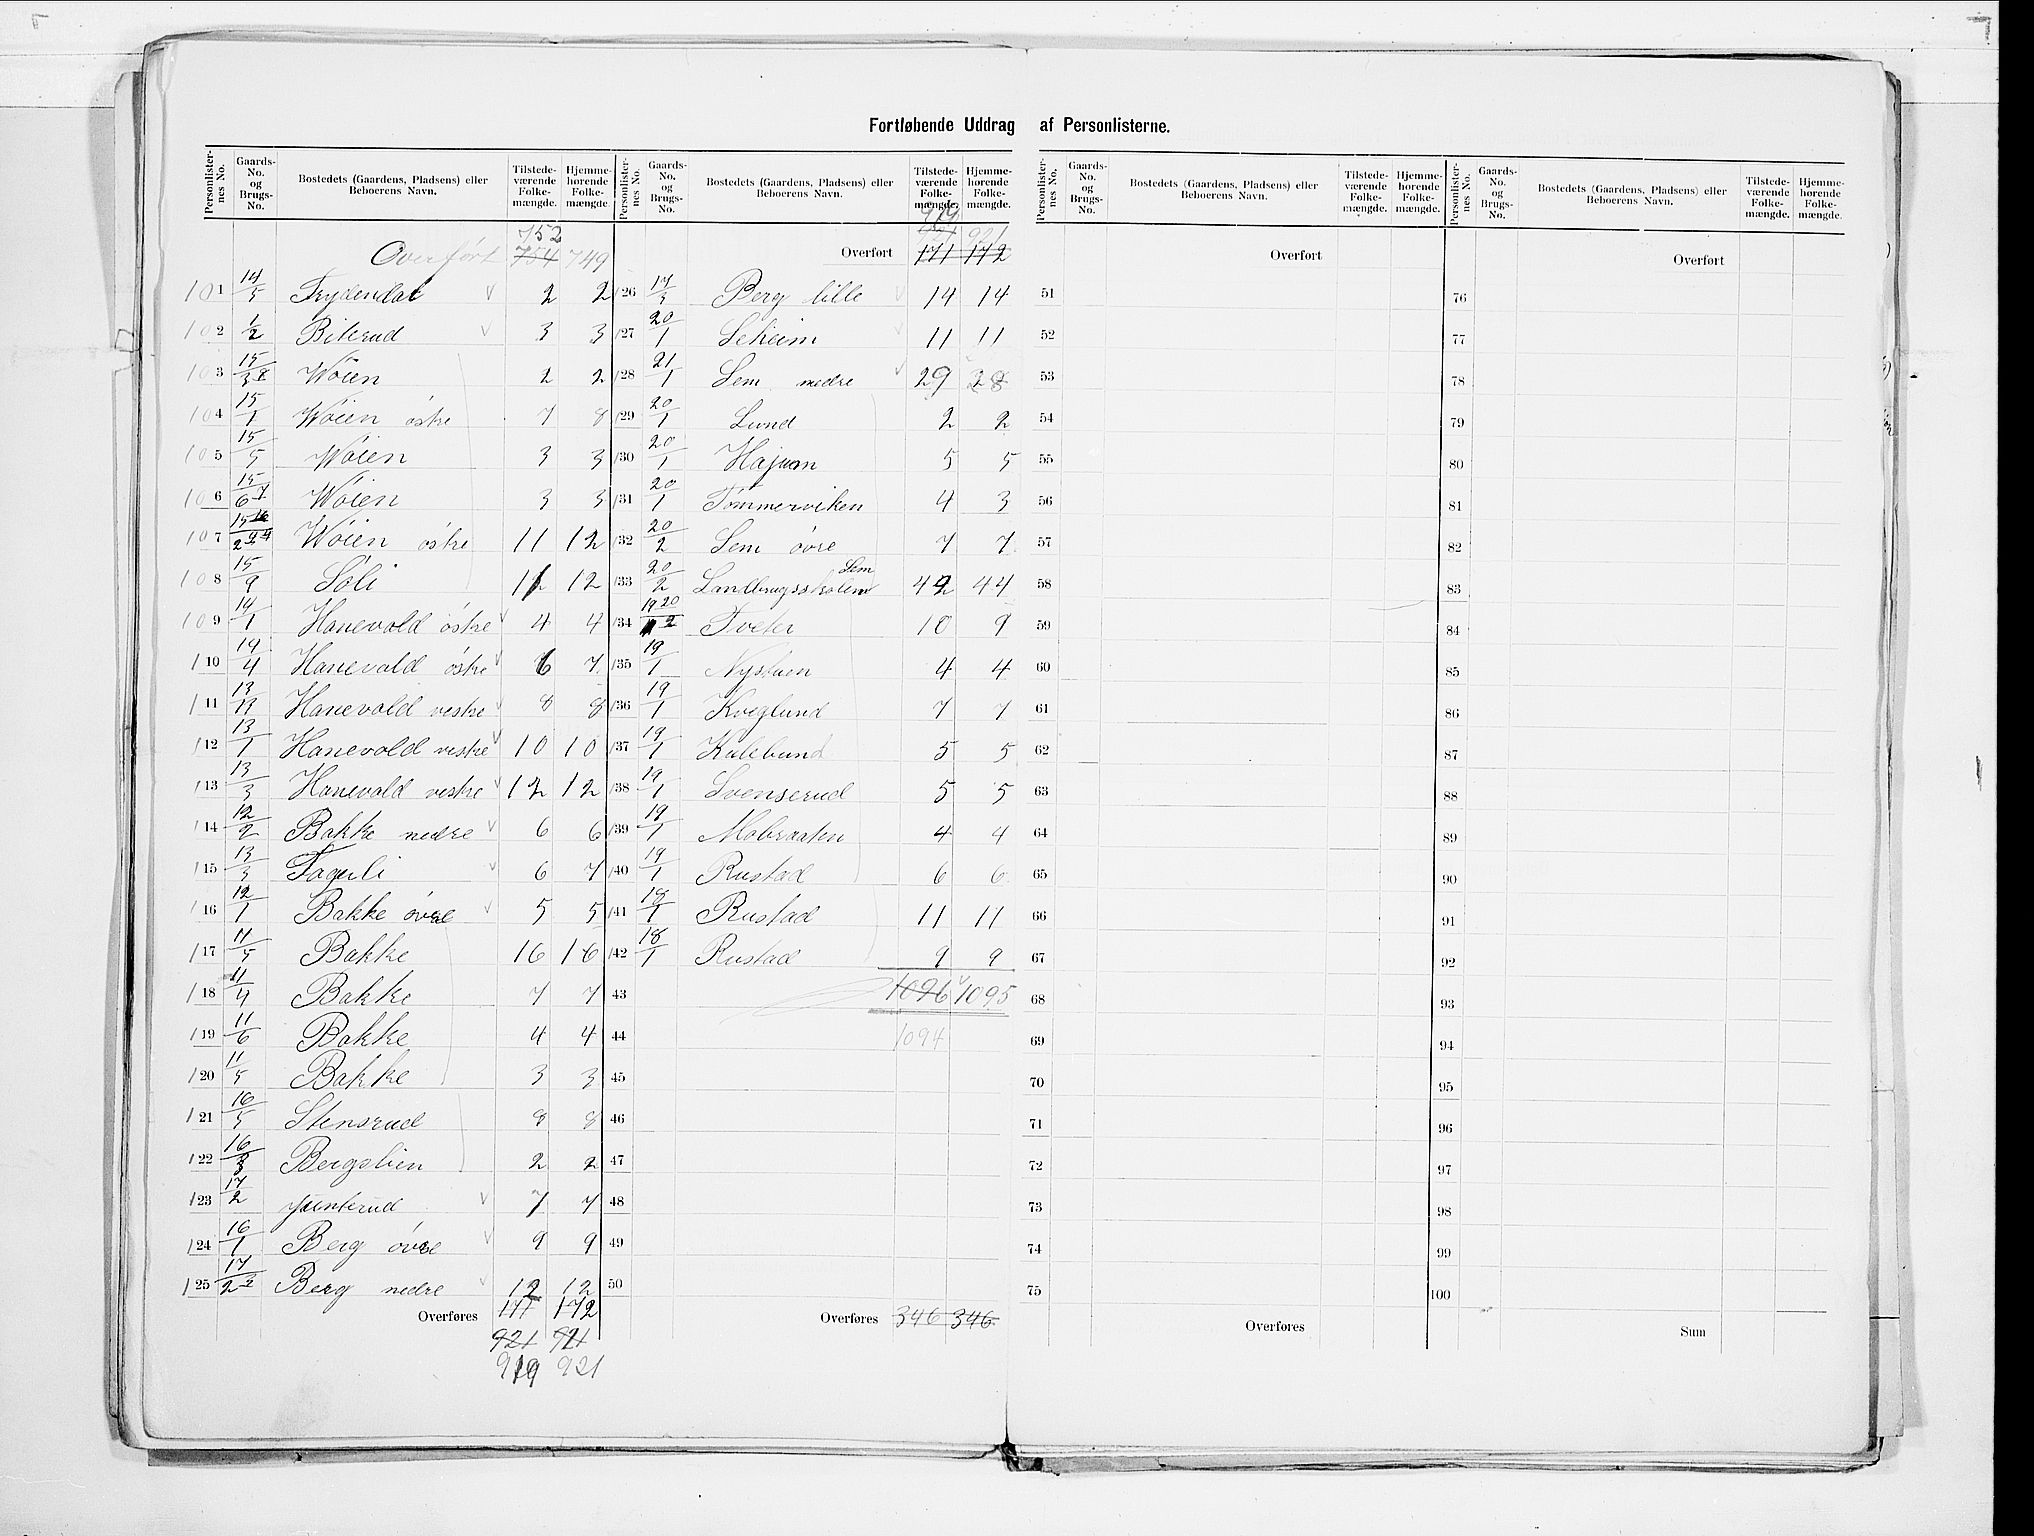 Fortløbende Uddrag af Personlisterne.
Personlisternes No. Gaards-No. og Brugs-No. Bostedets (Gaardens, Pladsens) eller Beboerens Navn. Tilstedeværende Folkemængde. Hjemmehørende Folkemængde.
752
Overført 754 749
101 14/5 Frydendal 2 2
102 1/2 Bilerud 3 3
103 15/38 Wøien 2 2
104 15/1 Wøien östre 7 8
105 15/5 Wøien 3 3
106 15/67 Wøien 3 3
107 15 Wøien östre 11 12
108 15/9 Söli 12
109 14/1 Hanevold östre 4 4
110 14/4 Hanevold östre 6 7
111 13/19 Hanevold vestre 8 8
112 13/1 Hanevold vestre 10 10
113 13/3 Hanevold vestre 12 12
114 12/2 Bakke nedre 6 6
115 13/3 Fagerli 6 7
116 12/1 Bakke övre 5 5
117 11/5 Bakke 16 16
118 11/4 Bakke 7 7
119 11/6 Bakke 4 4
120 11/5 Bakke 3 3
121 16/5 Stensrud 8 8
122 16/3 Bergslien 2 2
123 17/2 Jumterud 7 7
124 16/1 Berg övre 9 9
125 17/2 3 Berg nedre 12 12
Overføres 171 172
921 921
919 921
Personlisternes No. Gaards-No. og Brugs-No. Bostedets (Gaardens, Pladsens) eller Beboerens Navn. Tilstedeværende Folkemængde. Hjemmehørende Folkemængde.
919
921 921
Overført 171 172
126 17/3 Berg lille 14 14
127 20/1 Seheim 11 11
128 21/1 Sem nedre 29 28
129 20/1 Lund 2 2
130 20/1 Hajum 5 5
131 20/1 Tömmerviken 4 3
132 20/2 Sem övre 7 7
133 20/2 Landbrugsskolen Sem 42 44
134 19 20/1 2 Tveter 10 9
135 19/1 Nystuen 4 4
136 19/1 Kveglund 7 7
137 19/1 Kalebund 5 5
138 19/1 Svenserud 5 5
139 19/1 Mobraaten 4 4
140 19/1 Rustad 6 6
141 18/1 Rustad 11 11
142 18/1 Rustad 9 9
43 1096 1095
44 1094
45
46
47
48
49
50
Overføres 346 346
Personlisternes No. Gaards-No. og Brugs-No. Bostedets (Gaardens, Pladsens) eller Beboerens Navn. Tilstedeværende Folkemængde. Hjemmehørende Folkemængde.
Overført
51
52
53
54
55
56
57
58
59
60
61
62
63
64
65
66
67
68
69
70
71
72
73
74
75
Overføres
Personlisternes No. Gaards-No. og Brugs-No. Bostedets (Gaardens, Pladsens) eller Beboerens Navn. Tilstedeværende Folkemængde. Hjemmehørende Folkemængde.
Overført
76
77
78
79
80
81
82
83
84
85
86
87
88
89
90
91
92
93
94
95
96
97
98
99
100
Sum